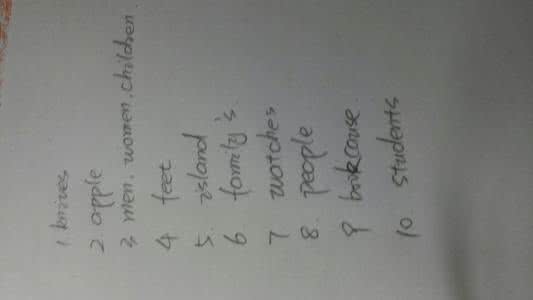 1 knives
2 apple
3 men. women. children
4 feet
5. island
6 family's
7 watches
8. people
9 bookcause
10. students